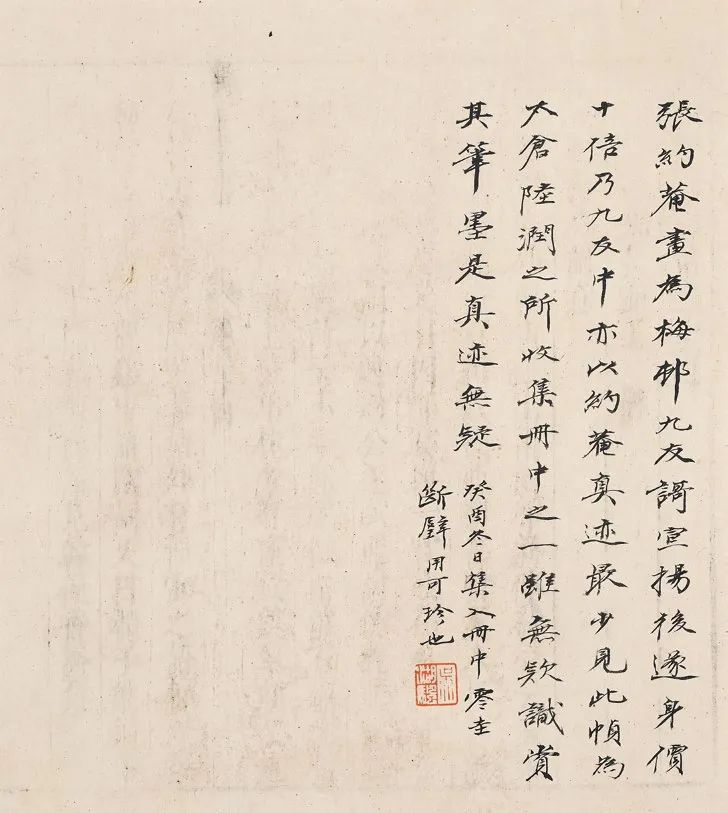 張約菴畫為梅邨九友謌宣揚後遂身價
十倍乃九友中亦以約菴真迹最少見此幀為
太倉陸潤之所收集冊中之一雖無欵識賞
其筆墨是真迹無疑
癸酉冬日集入冊中零圭
斷璧用可珍也